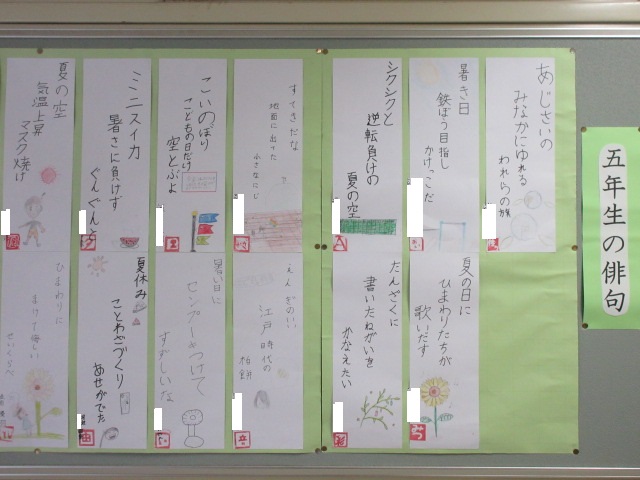 五年生の俳句
あじさいの
みなかにゆれる
われらの旗
暑き日
鉄ぼう目指し
かけっこだ
シクシクと
逆転負けの
夏の空
すてきだな
地面に出った
小さなにじ
こいのぼり
こどもの日だけ
空とぶよ
ミニスイカ
暑さに負けず
ぐんぐんと
夏の空
気温上昇
マスク焼け
夏の日に
ひまわりたちが
歌いだす
たんざくに
書いたねがいを
かなえたい
えんぎのいい
江戸時代の
柏餅
暑い日に
センプーキつけて
すずしいな
夏休み
ことわざづくり
あせがでた
ひまわりに
まけて悔しい
せいくらべ